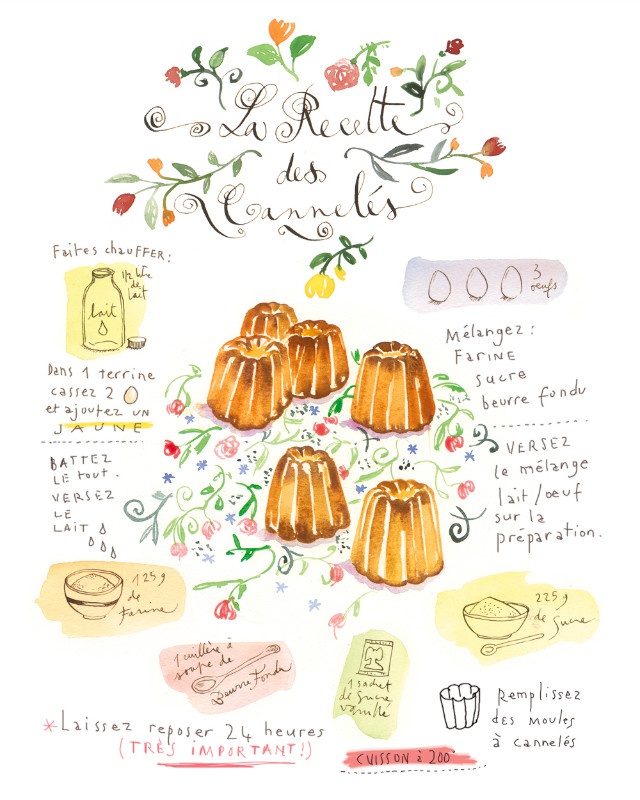 La Recette
des
Cannelés
Faites chauffer:
1/2 litre
de
lait
lait
Dans 1 terrine
cassez 2
et ajoutez UN
JAUNE
BATTEZ
LE tout.
VERSEZ
LE
LAIT
125g
de
Farine
1 cuillère à
soupe de
Beurre Fondu
*Laissez reposer 24 heures
(TRÈS IMPORTANT!)
3
oeufs
Mélangez:
FARINE
sucre
beurre fondu
VERSEZ
le mélange
lait/oeuf
sur la
préparation.
225g
de Sucre
1 sachet
de sucre
vanille
Remplissez
des moules
à cannelés
CUISSON à 200°